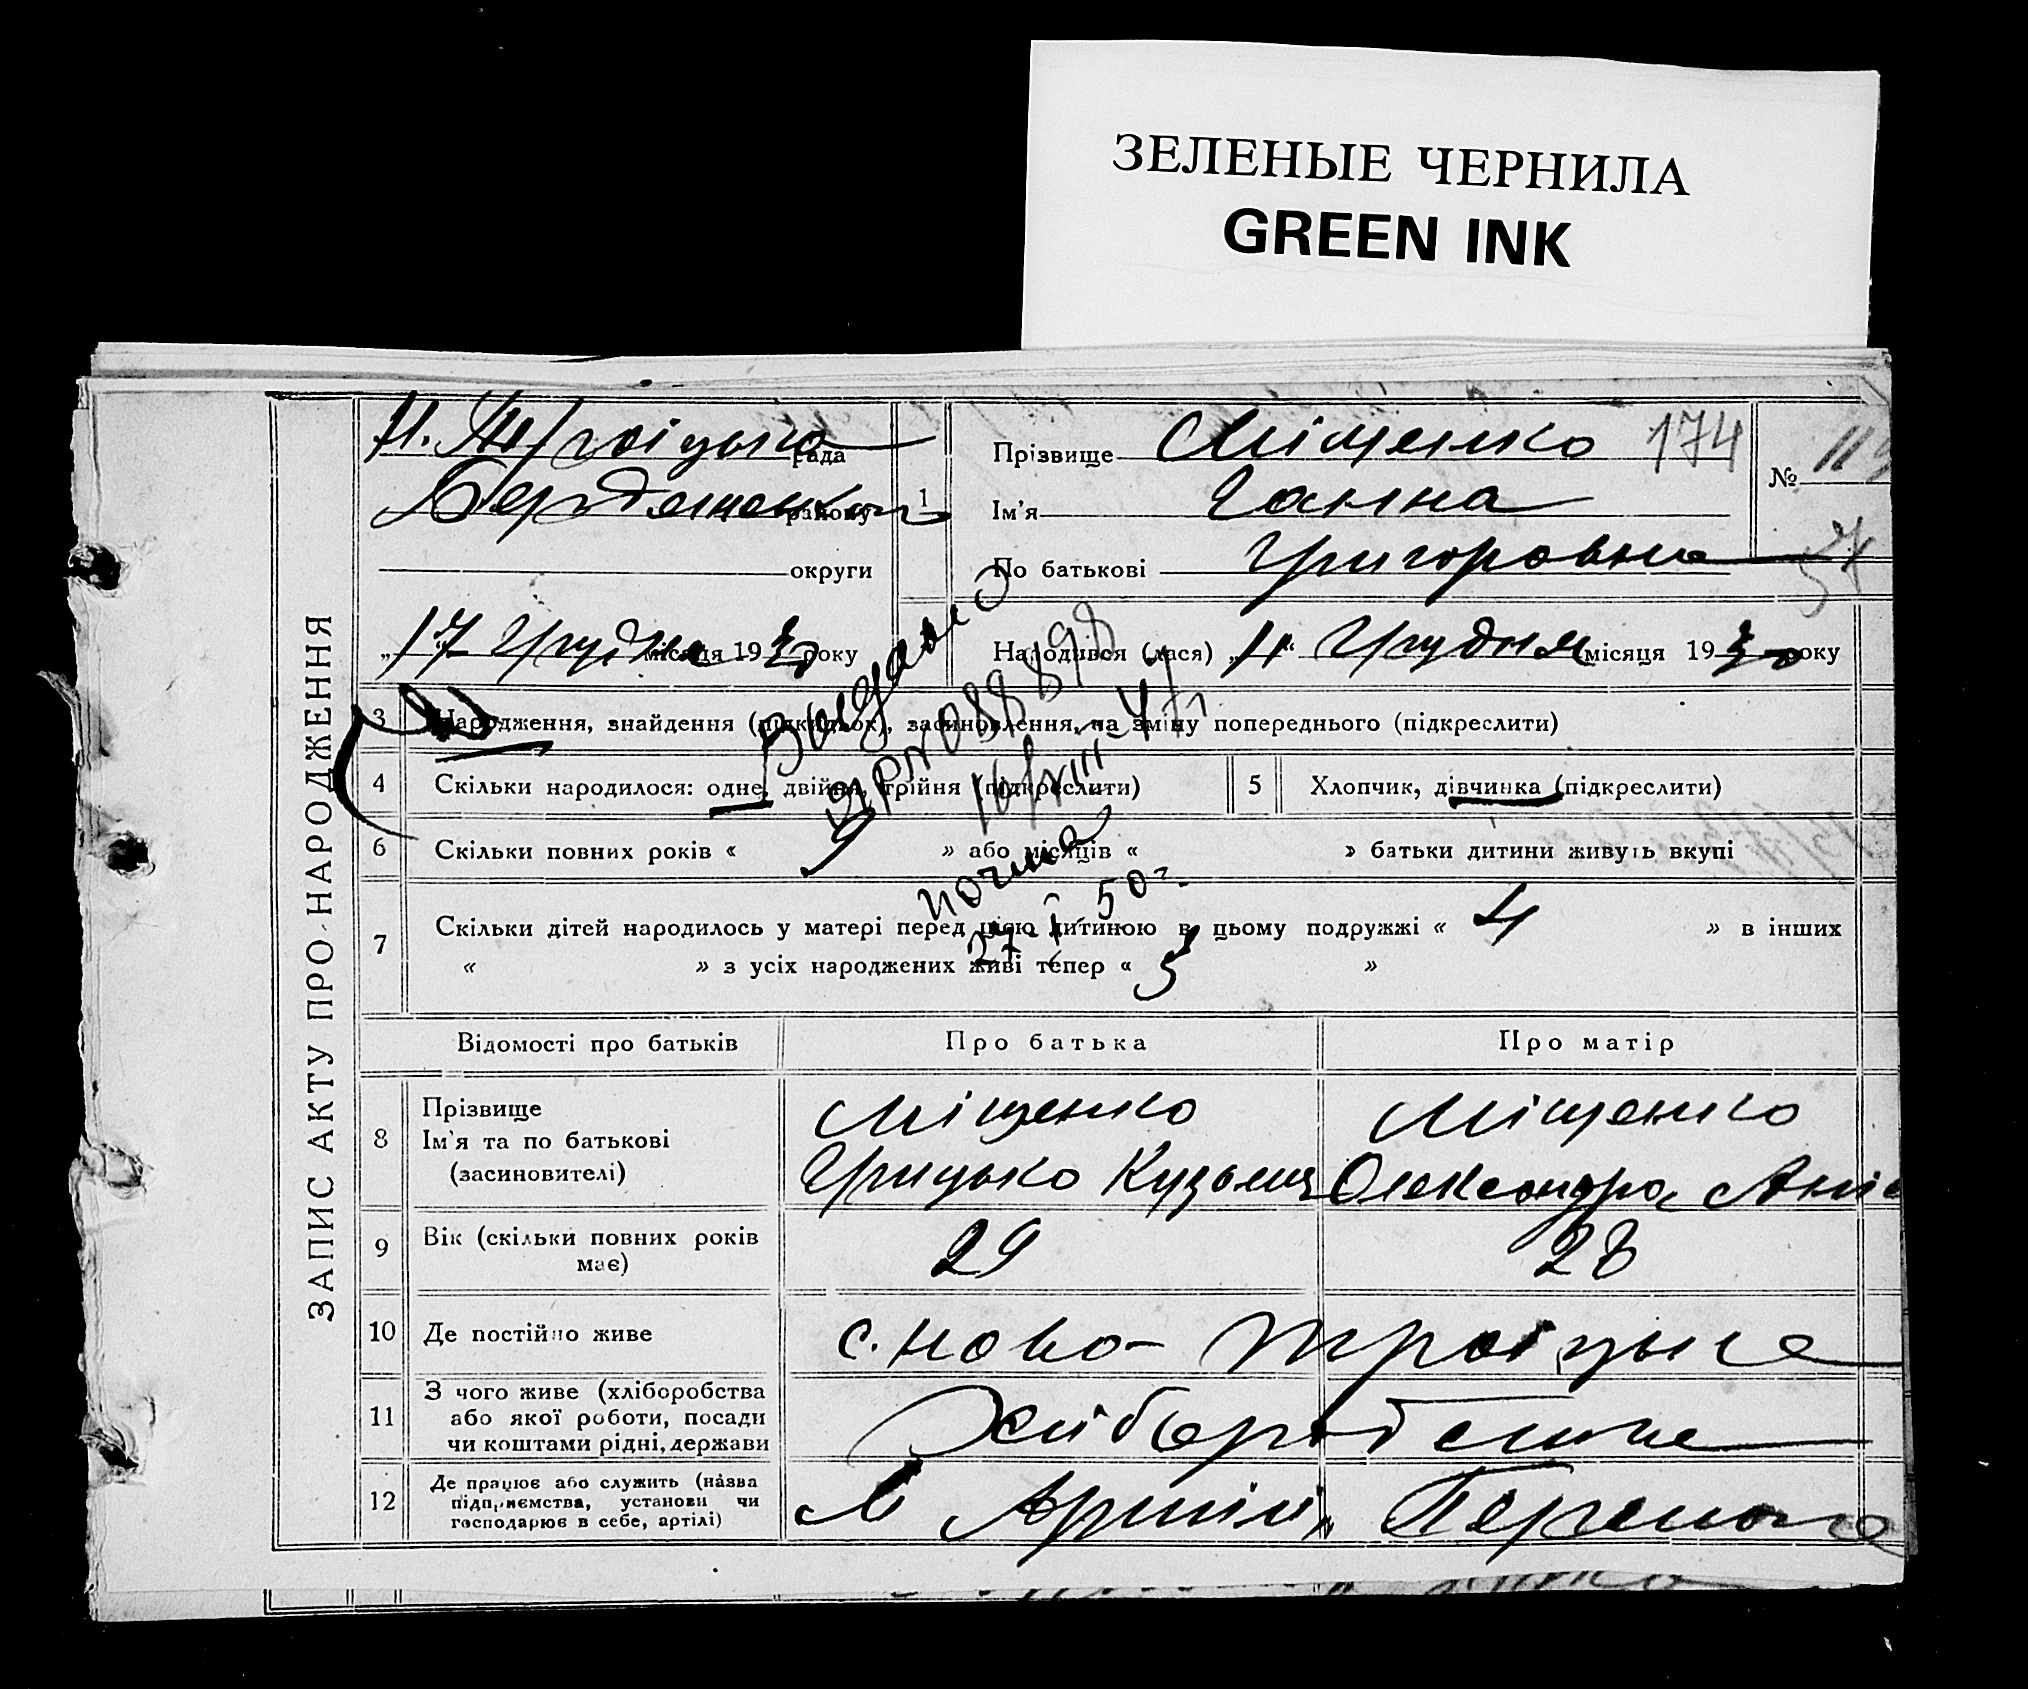 ЗЕЛЕНЫЕ ЧЕРНИЛА
GREEN INK
ЗАПИС АКТУ ПРО НАРОДЖЕННЯ
Н. Троіцька рада
району
округи
„17 Грудня місяця 1930 року
1
Прізвище Міщенко 174
Ім'я Ганна
По батькові Григоровна
№ 114
Народився (лася) „11“ Грудня місяця 1930 року
3 Народження, знайдення (підкидьок), засиновлення, на зміну попереднього (підкреслити)
4 Скільки народилося: одне, двійня, трійня (підкреслити)
5 Хлопчик, дівчинка (підкреслити)
6 Скільки повних років « 9 » або місяців « » батьки дитини живуть вкупі
7 Скільки дітей народилось у матері перед цією дитиною в цьому подружжі « 4 » в інших
« » з усіх народжених живі тепер « 5 »
16/VIII-47
50 г.
Відомості про батьків
Про батька
Про матір
8 Прізвище
Ім'я та по батькові
(засиновителі)
Міщенко
Грицько Кузьмич
Міщенко
Олександра
9 Вік (скільки повних років
має)
29
28
10 Де постійно живе
с. Ново-Троіцьке
11 З чого живе (хліборобства
або якої роботи, посади
чи коштами рідні, держави
Хліборобство
12 Де працює або служить (назва
підприємства, установи чи
господарює в себе, артілі)
В Артілі